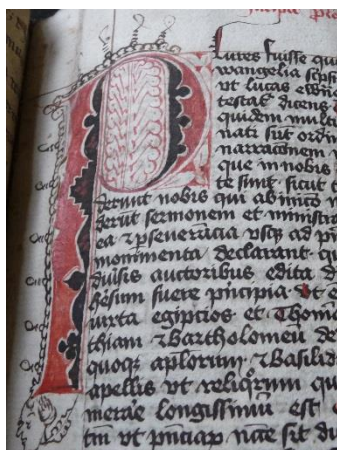 Incipit
Plures fuisse qui
wangelia scpse
vt lucas ewan
testat dicens
quidem multi
nati sūt ordin
narracōnem
que in nobis
te sūnt sicut t
derunt nobis qui ab inico v
derūt sermonem et ministra
ea ⁊ pseuerācia vsqȝ ad p
monimenta declarant q
diuīsis auctoribus edita d
hesium fuere pncipia vt e
iuxta egipcios et Thom
thiam ⁊ Bartholomeū de
quoqȝ aplorum ⁊ Basilid
apellis vt reliqrum qu
merāe longissimū est
tm vt pncīap nāe sit di